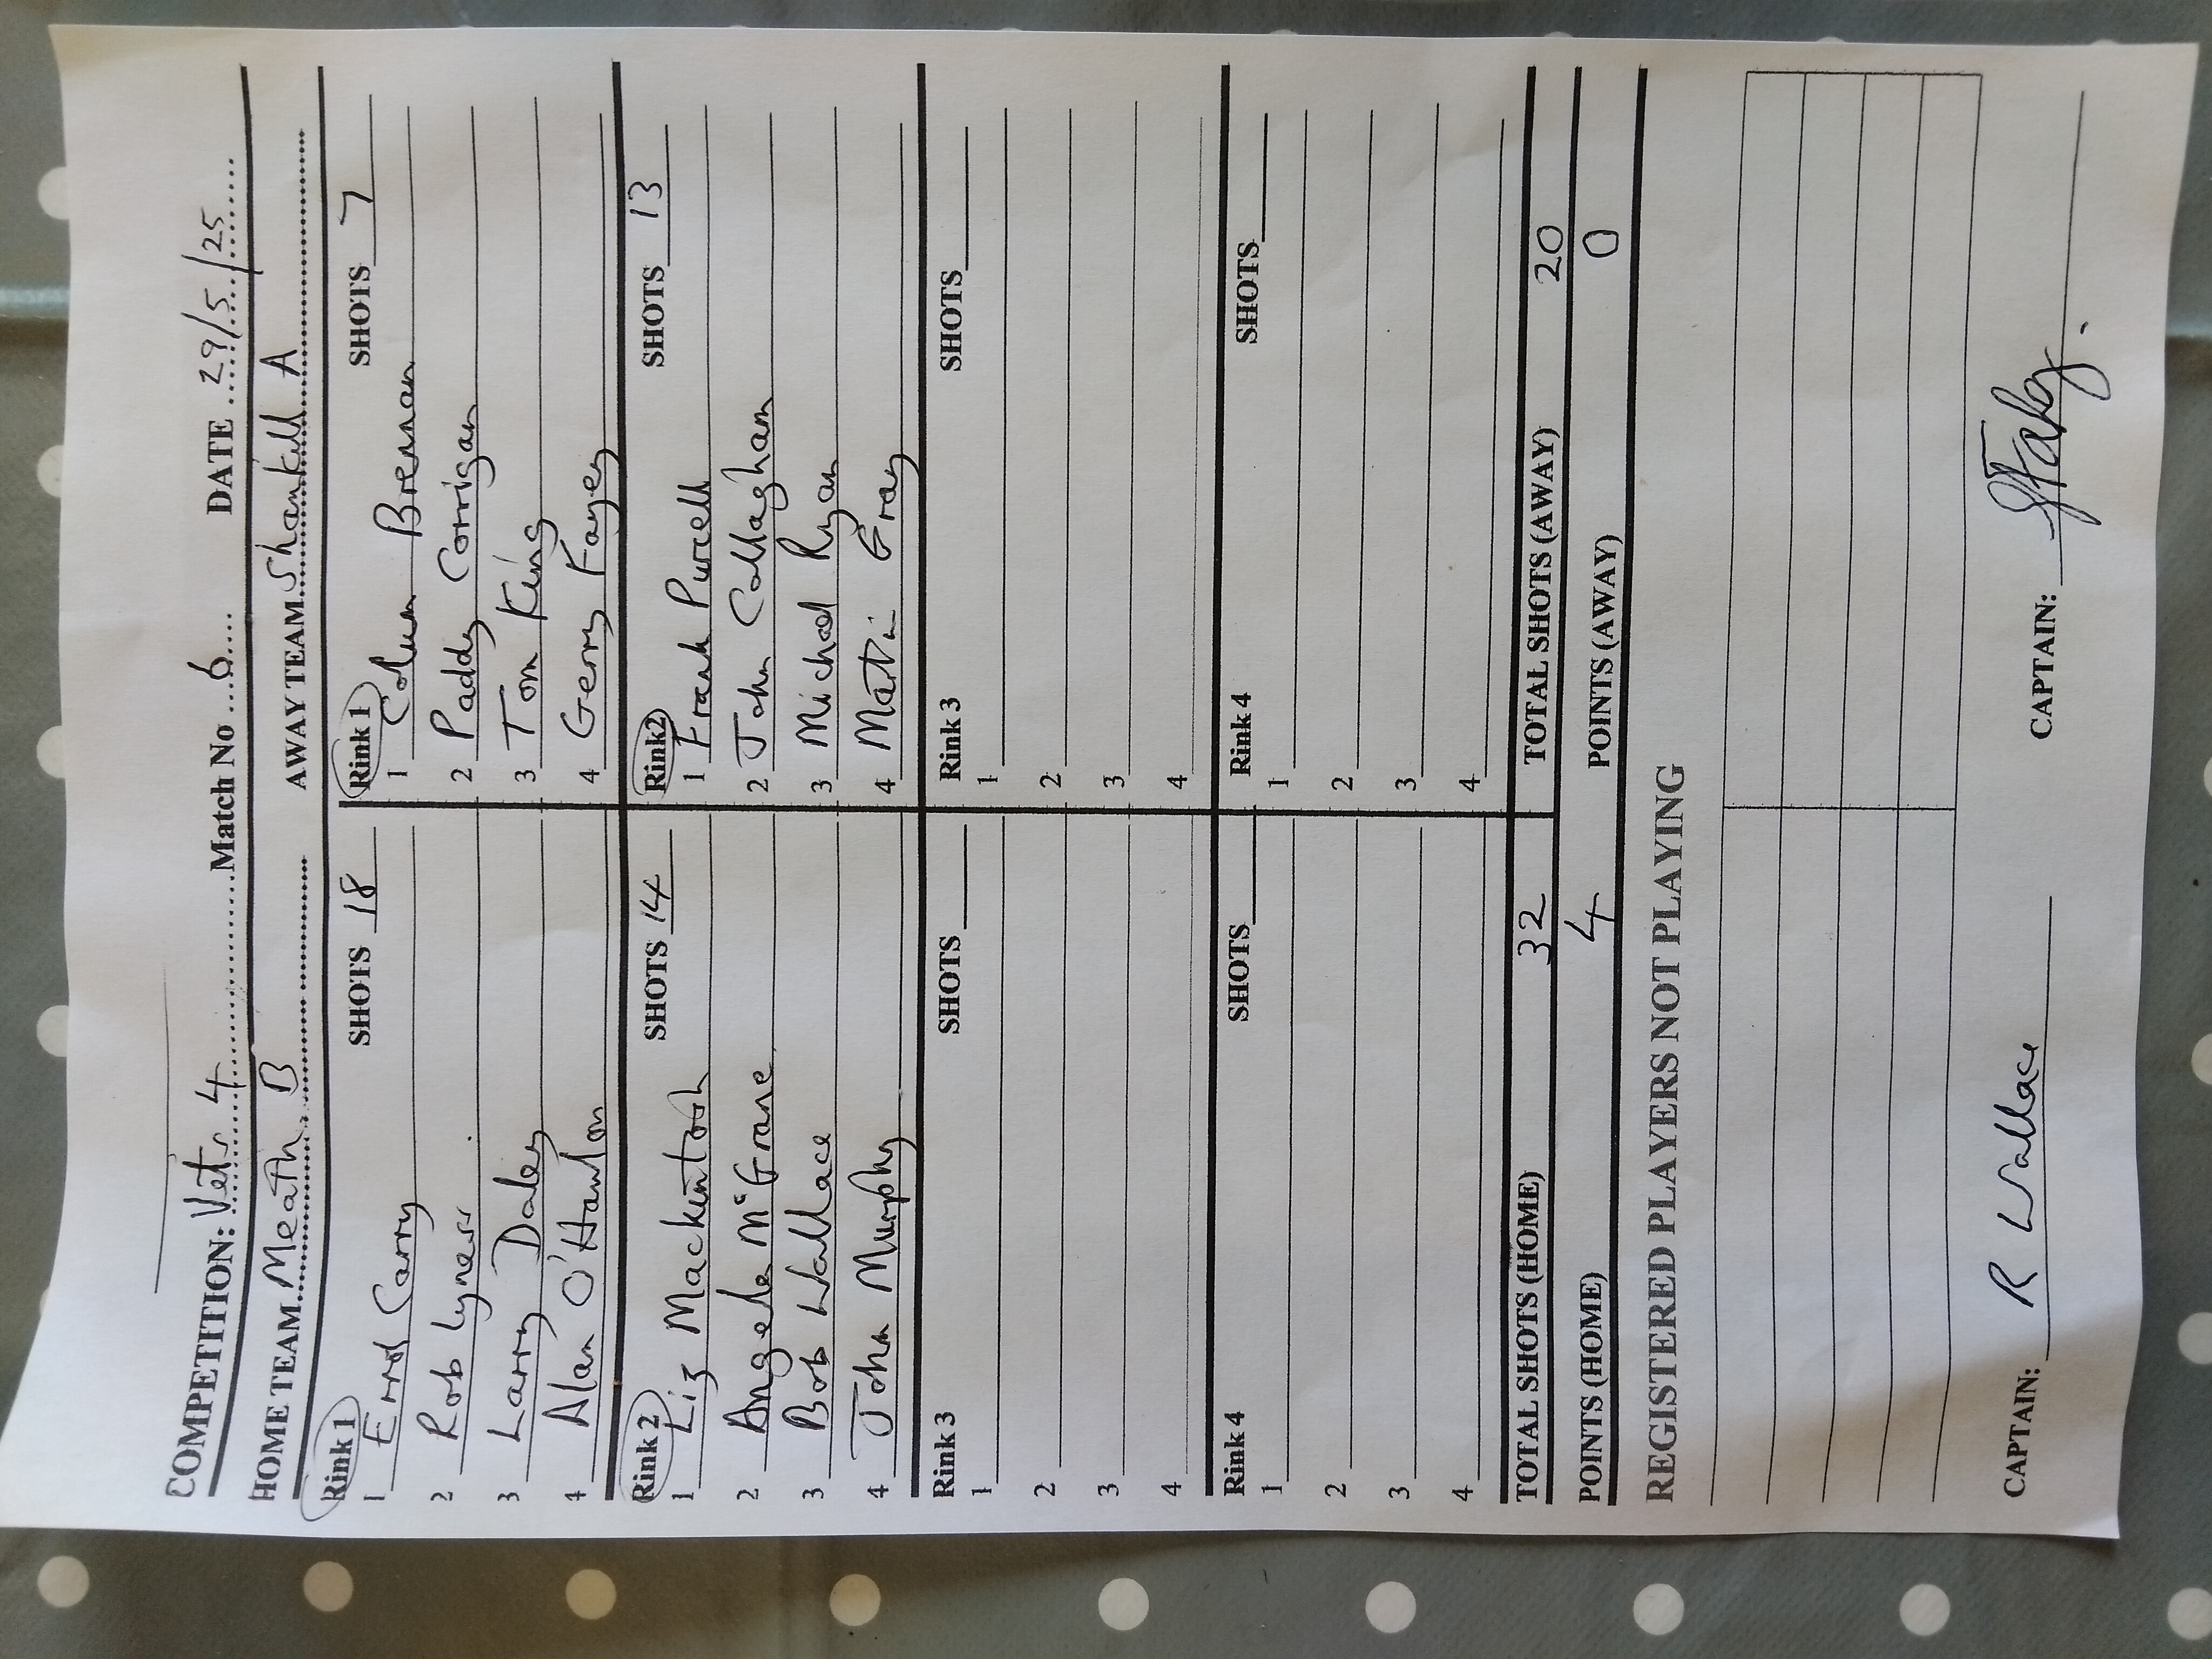 COMPETITION: Vets 4 Match No 6 DATE 29/5/25
HOME TEAM Meath B AWAY TEAM Shankill A
Rink 1 SHOTS 18 Rink 1 SHOTS 7
1 Errol Carry 1 Colum Brennan
2 Rob Lyness 2 Paddy Corrigan
3 Larry Daley 3 Tom King
4 Alan O'Hanlon 4 Gerry Fayey
Rink 2 SHOTS 14 Rink2 SHOTS 13
1 Liz Mackintosh 1 Frank Purcell
2 Angela McGrane 2 John Collaghan
3 Bob Wallace 3 Michael Ryan
4 John Murphy 4 Martin Gray
Rink 3 SHOTS Rink 3 SHOTS
1 1
2 2
3 3
4 4
Rink 4 SHOTS Rink 4 SHOTS
1 1
2 2
3 3
4 4
TOTAL SHOTS (HOME) 32 TOTAL SHOTS (AWAY) 20
POINTS (HOME) 4 POINTS (AWAY) 0
REGISTERED PLAYERS NOT PLAYING
CAPTAIN: R Wallace CAPTAIN: